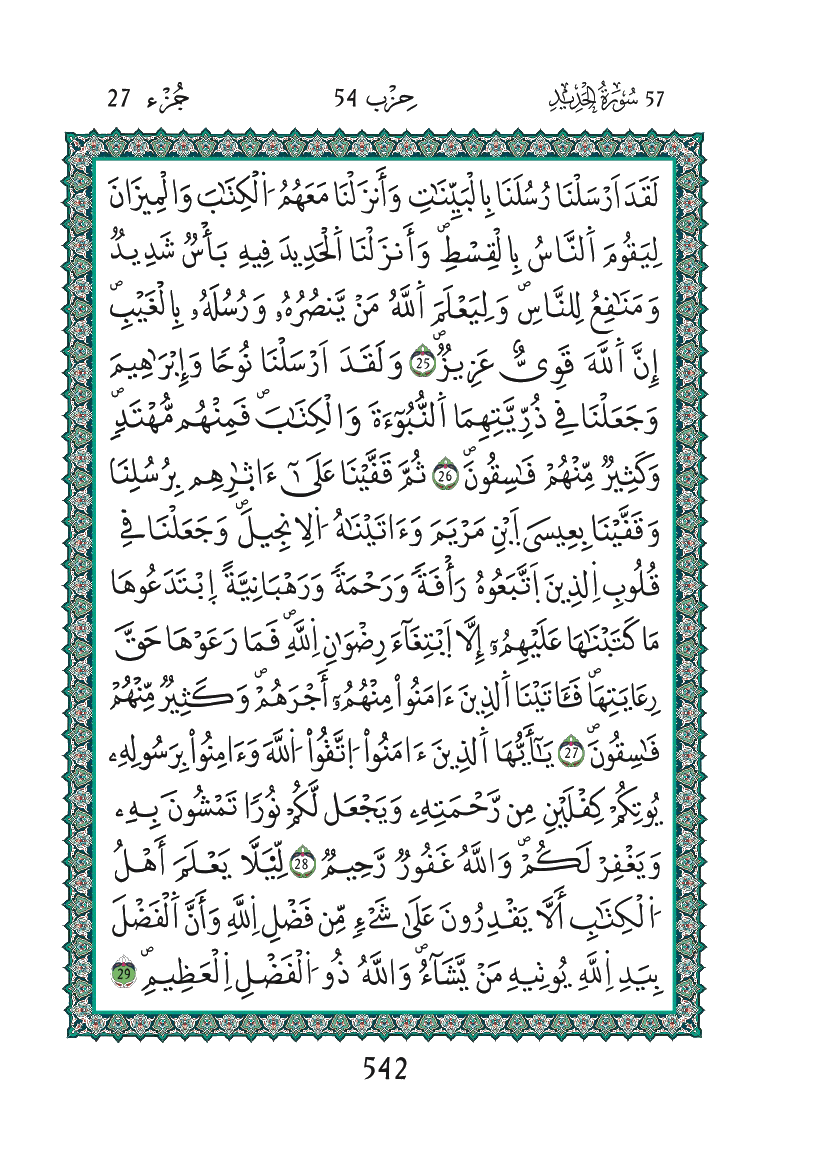 57 سُورَةُ الْحَدِيدِ حِزْب 54 جُزْء 27
لَقَدَ اَرْسَلْنَا رُسُلَنَا بِالْبَيِّنَٰتِ وَأَنزَلْنَا مَعَهُمُ اُ۬لْكِتَٰبَ وَالْمِيزَانَ
لِيَقُومَ اَ۬لنَّاسُ بِالْقِسْطِۖ وَأَنزَلْنَا اَ۬لْحَدِيدَ فِيهِ بَأْسٞ شَدِيدٞ
وَمَنَٰفِعُ لِلنَّاسِۖ وَلِيَعْلَمَ اَ۬للَّهُ مَنْ يَّنصُرُهُۥ وَرُسُلَهُۥ بِالْغَيْبِۖ
إِنَّ اَ۬للَّهَ قَوِيٌّ عَزِيزٞۖ 25 وَلَقَدَ اَرْسَلْنَا نُوحٗا وَإِبْرَٰهِيمَ
وَجَعَلْنَا فِے ذُرِّيَّتِهِمَا اَ۬لنُّبُوٓءَةَ وَالْكِتَٰبَۖ فَمِنْهُم مُّهْتَدٖۖ
وَكَثِيرٞ مِّنْهُمْ فَٰسِقُونَۖ 26 ثُمَّ قَفَّيْنَا عَلَىٰٓ ءَاثٰ۪رِهِم بِرُسُلِنَا
وَقَفَّيْنَا بِعِيسَى اَ۪بْنِ مَرْيَمَ وَءَاتَيْنَٰهُ اُ۬لِانجِيلَۖ وَجَعَلْنَا فِے
قُلُوبِ اِ۬لذِينَ اَ۪تَّبَعُوهُ رَأْفَةٗ وَرَحْمَةٗ وَرَهْبَانِيَّةً اِ۪بْتَدَعُوهَا
مَا كَتَبْنَٰهَا عَلَيْهِمُۥٓ إِلَّا اَ۪بْتِغَآءَ رِضْوَٰنِ اِ۬للَّهِۖ فَمَا رَعَوْهَا حَقَّ
رِعَايَتِهَاۖ فَـَٔاتَيْنَا اَ۬لذِينَ ءَامَنُواْ مِنْهُمُۥٓ أَجْرَهُمْۖ وَكَثِيرٞ مِّنْهُمْ
فَٰسِقُونَۖ 27 يَٰٓأَيُّهَا اَ۬لذِينَ ءَامَنُواْ اُ۪تَّقُواْ اُ۬للَّهَ وَءَامِنُواْ بِرَسُولِهِۦ
يُوتِكُمْ كِفْلَيْنِ مِن رَّحْمَتِهِۦ وَيَجْعَل لَّكُمْ نُورٗا تَمْشُونَ بِهِۦ
وَيَغْفِرْ لَكُمْۖ وَاللَّهُ غَفُورٞ رَّحِيمٞ 28 لِّيَ۬لَّا يَعْلَمَ أَهْلُ
اُ۬لْكِتَٰبِ أَلَّا يَقْدِرُونَ عَلَىٰ شَےْءٖ مِّن فَضْلِ اِ۬للَّهِ وَأَنَّ اَ۬لْفَضْلَ
بِيَدِ اِ۬للَّهِ يُوتِيهِ مَنْ يَّشَآءُۖ وَاللَّهُ ذُو اُ۬لْفَضْلِ اِ۬لْعَظِيمِۖ 29
542